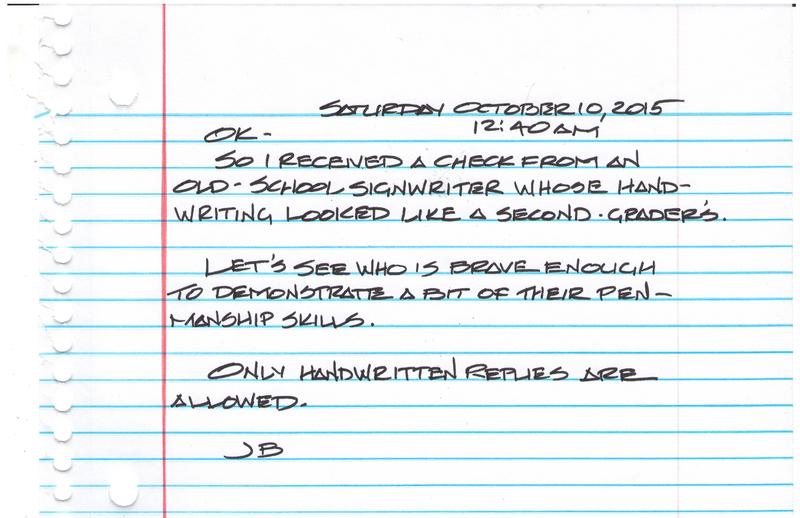 SATURDAY OCTOBER 10, 2015
12:40 AM
OK-
SO I RECEIVED A CHECK FROM AN
OLD-SCHOOL SIGNWRITER WHOSE HAND-
WRITING LOOKED LIKE A SECOND-GRADER'S.
LET'S SEE WHO IS BRAVE ENOUGH
TO DEMONSTRATE A BIT OF THEIR PEN-
MANSHIP SKILLS.
ONLY HANDWRITTEN REPLIES ARE
ALLOWED.
JB